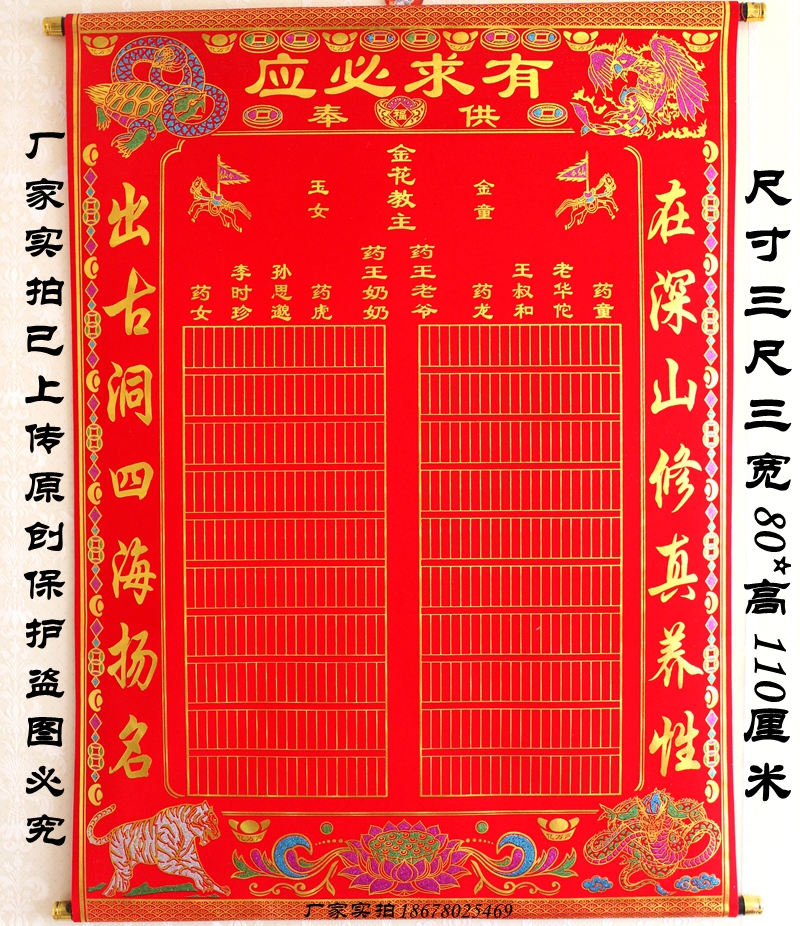 有求必应
供奉
在深山修真养性
出古洞四海扬名
金花教主
金童
玉女
药王老爷
药王奶奶
药童
老华佗
王叔和
药龙
药虎
孙思邈
李时珍
药女
福
尺寸三尺三宽80*高110厘米
厂家实拍已上传原创保护盗图必究
厂家实拍18678025469